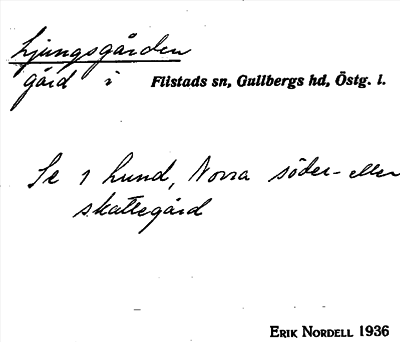 Ljungsgården
gård i Flistads sn, Gullbergs hd, Östg. l.
Se 1 Lund, Norra söder- eller
skattegård
ERIK NORDELL 1936